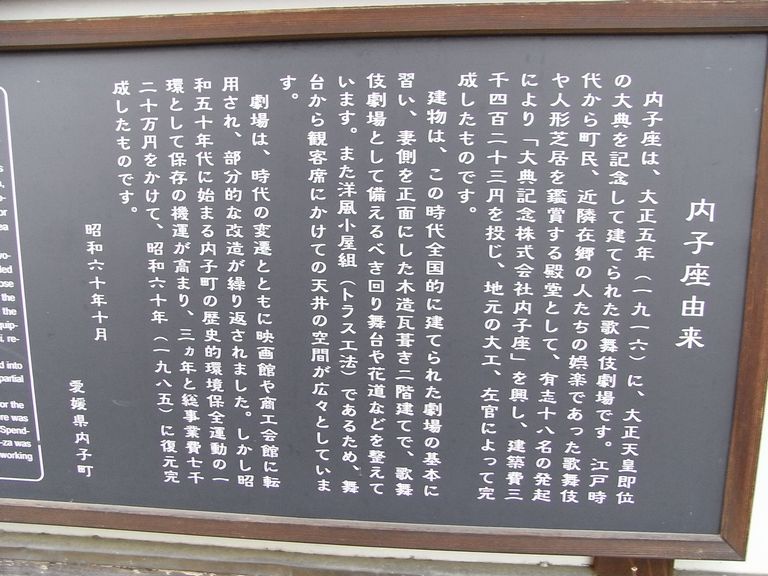 内子座由来
内子座は、大正五年（一九一六）に、大正天皇即位
の大典を記念して建てられた歌舞伎劇場です。江戸時
代から町民、近隣在郷の人たちの娯楽であった歌舞伎
や人形芝居を鑑賞する殿堂として、有志十八名の発起
により「大典記念株式会社内子座」を興し、建築費三
千四百二十三円を投じ、地元の大工、左官によって完
成したものです。
建物は、この時代全国的に建てられた劇場の基本に
習い、妻側を正面にした木造瓦葺き二階建てで、歌舞
伎劇場として備えるべき回り舞台や花道などを整えて
います。また洋風小屋組（トラス工法）であるため、舞
台から観客席にかけての天井の空間が広々としていま
す。
劇場は、時代の変遷とともに映画館や商工会館に転
用され、部分的な改造が繰り返されました。しかし昭
和五十年代に始まる内子町の歴史的環境保全運動の一
環として保存の機運が高まり、三ヵ年と総事業費七千
二十万円をかけて、昭和六十年（一九八五）に復元完
成したものです。
昭和六十年十月
愛媛県内子町
or
the
the
quip-
i, re-
d into
partial
or the
re was
Spend-
-za was
working